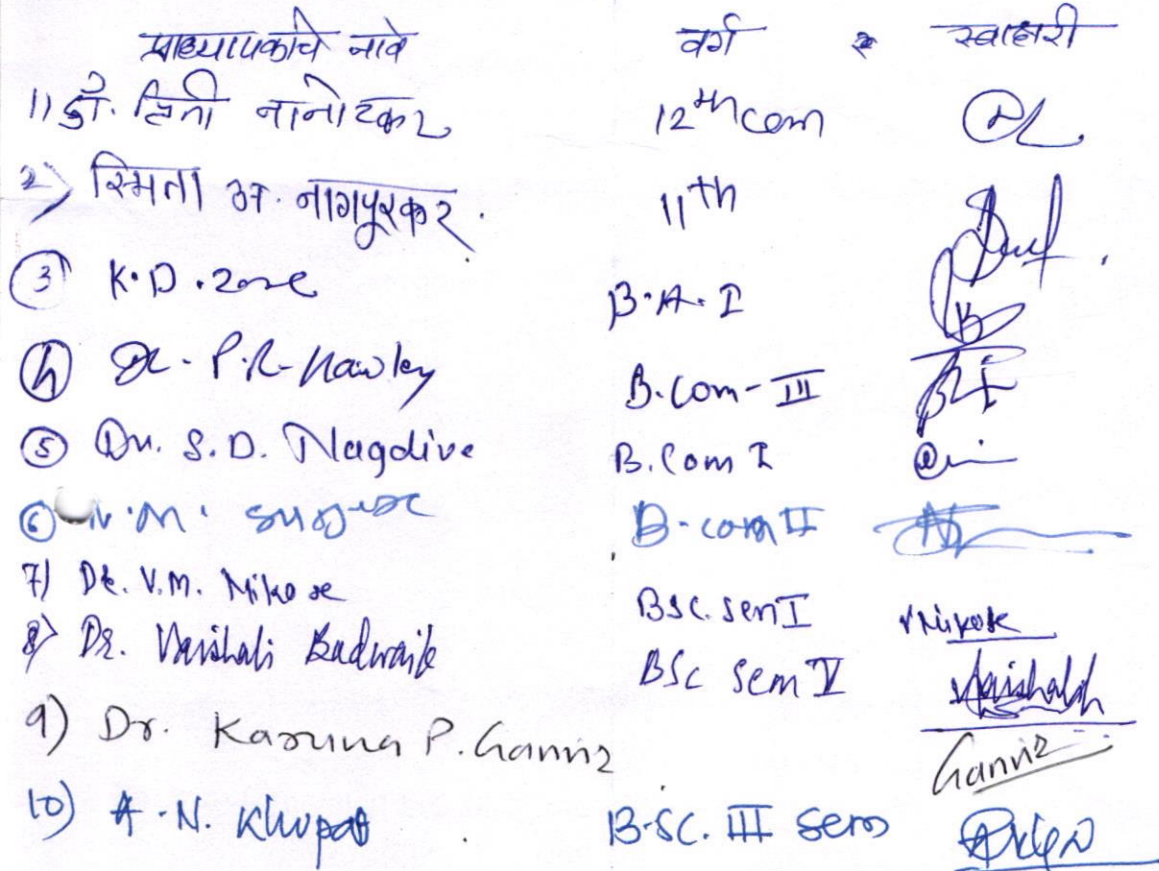 प्राध्यापकांचे नावे वर्ग स्वाक्षरी
1) डॉ. नानोटकर 12th com
2) स्मिता अ. नागपूरकर. 11th
(3) K.D. Zore B.A.I
(4) Dr. P.R. B.Com-III
(5) Dr. S.D. Nagdive B.Com I
(6) N.M. B-com II
7) Dr. V.M. Nikose BSC. Sem I VNikose
8) Dr. Vaishali Badwaik BSc Sem V Vaishali
9) Dr. Karuna P. Ganvir Ganvir
10) A.N. Khupat B.SC. III Sem